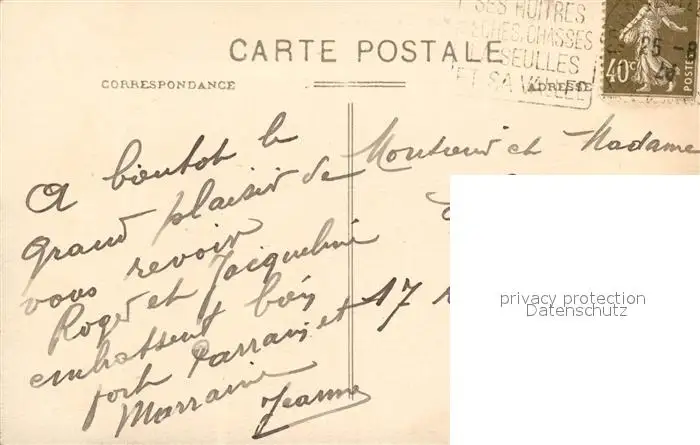 T SES HUITRES
PÊCHES, CHASSES
SEULLES
ET SA VALLÉE
25
40c
POSTES
CARTE POSTALE
CORRESPONDANCE
ADRESSE
A bientot le
grand plaisir de
vous revoir
Roger et Jacqueline
embrassent bien
fort Parrain et
Marraine
Jeanne
Monsieur et Madame
17
privacy protection
Datenschutz